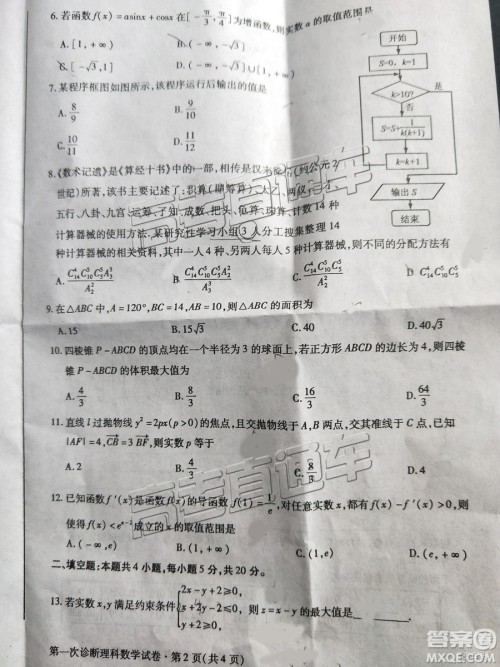 6. 若函数 f(x)=asinx+cosx 在[-π/3, π/4]为增函数,则实数 a 的取值范围是
A. [1,+∞) B. (-∞,-√3]
C. [-√3,1] D. (-∞,-√3]∪[1,+∞)
7. 某程序框图如图所示,该程序运行后输出的值是
A. 8/9 B. 9/10
C. 10/11 D. 11/12
开始
S=0, k=1
k>10?
是
否
S=S+1/k(k+1)
k=k+1
输出 S
结束
8. 《数术记遗》是《算经十书》中的一部,相传是汉末
世纪)所著,该书主要记述了:积算(即筹算)、太乙、两仪、
五行、八卦、九宫、运筹、了知、成数、把头、龟算、珠算、计数 14 种
计算器械的使用方法.某研究性学习小组 3 人分工搜集整理 14
种计算器械的相关资料,其中一人 4 种、另两人每人 5 种计算器械,则不同的分配方法有
9. 在△ABC 中,A=120°,BC=14,AB=10,则△ABC 的面积为
A. 15 B. 15√3 C. 40 D. 40√3
10. 四棱锥 P-ABCD 的顶点均在一个半径为 3 的球面上,若正方形 ABCD 的边长为 4,则四棱
锥 P-ABCD 的体积最大值为
A. 4/3 B. 8/3 C. 16/3 D. 64/3
11. 直线 l 过抛物线 y²=2px(p>0)的焦点,且交抛物线于 A,B 两点,交其准线于 C 点,已知
|AF|=4,CB=3BF,则实数 p 等于
A. 2 B. 4/3 C. 8/3 D. 4
12. 已知函数 f′(x)是函数 f(x)的导函数,f(1)=1/e,对任意实数 x,都有 f(x)-f′(x)>0,则
使得 f(x)<e^(x-2) 成立的 x 的取值范围是
A. (-∞,e) B. (1,+∞) C. (1,e) D. (e,+∞)
二、填空题:本题共 4 小题,每小题 5 分,共 20 分。
2x-y+2≥0,
13. 若实数 x,y 满足约束条件 x+2y-2≤0, 则 z=x-y 的最大值是
y+2≥0,
第一次诊断理科数学试卷·第 2 页(共 4 页)
高考直通车
高考直通车
答案圈